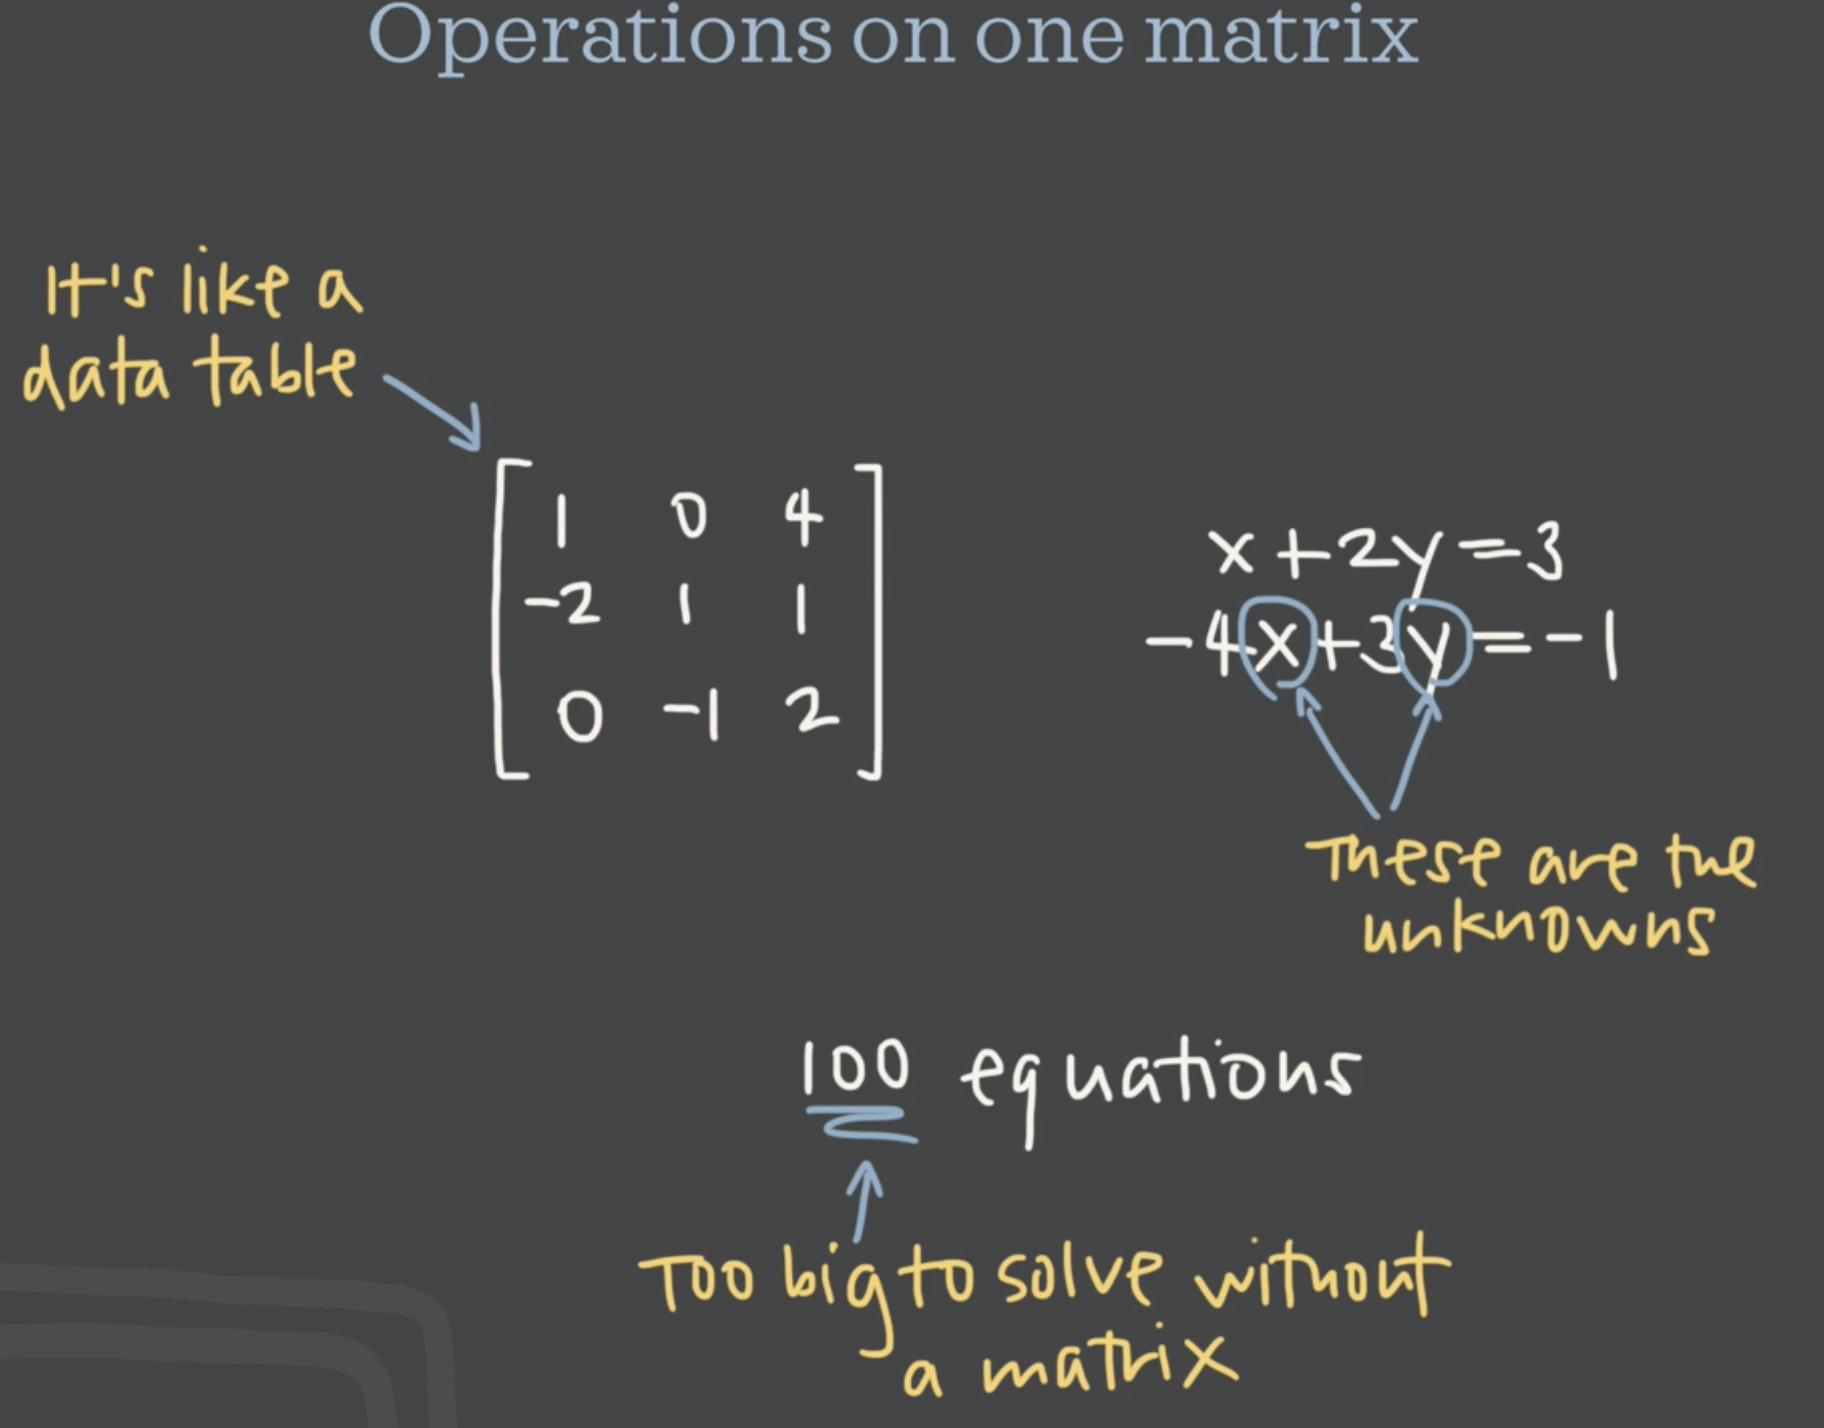 Operations on one matrix
It's like a
data table
1 0 4
-2 1 1
0 -1 2
x+2y=3
-4x+3y=-1
These are the
unknowns
100 equations
Too big to solve without
a matrix